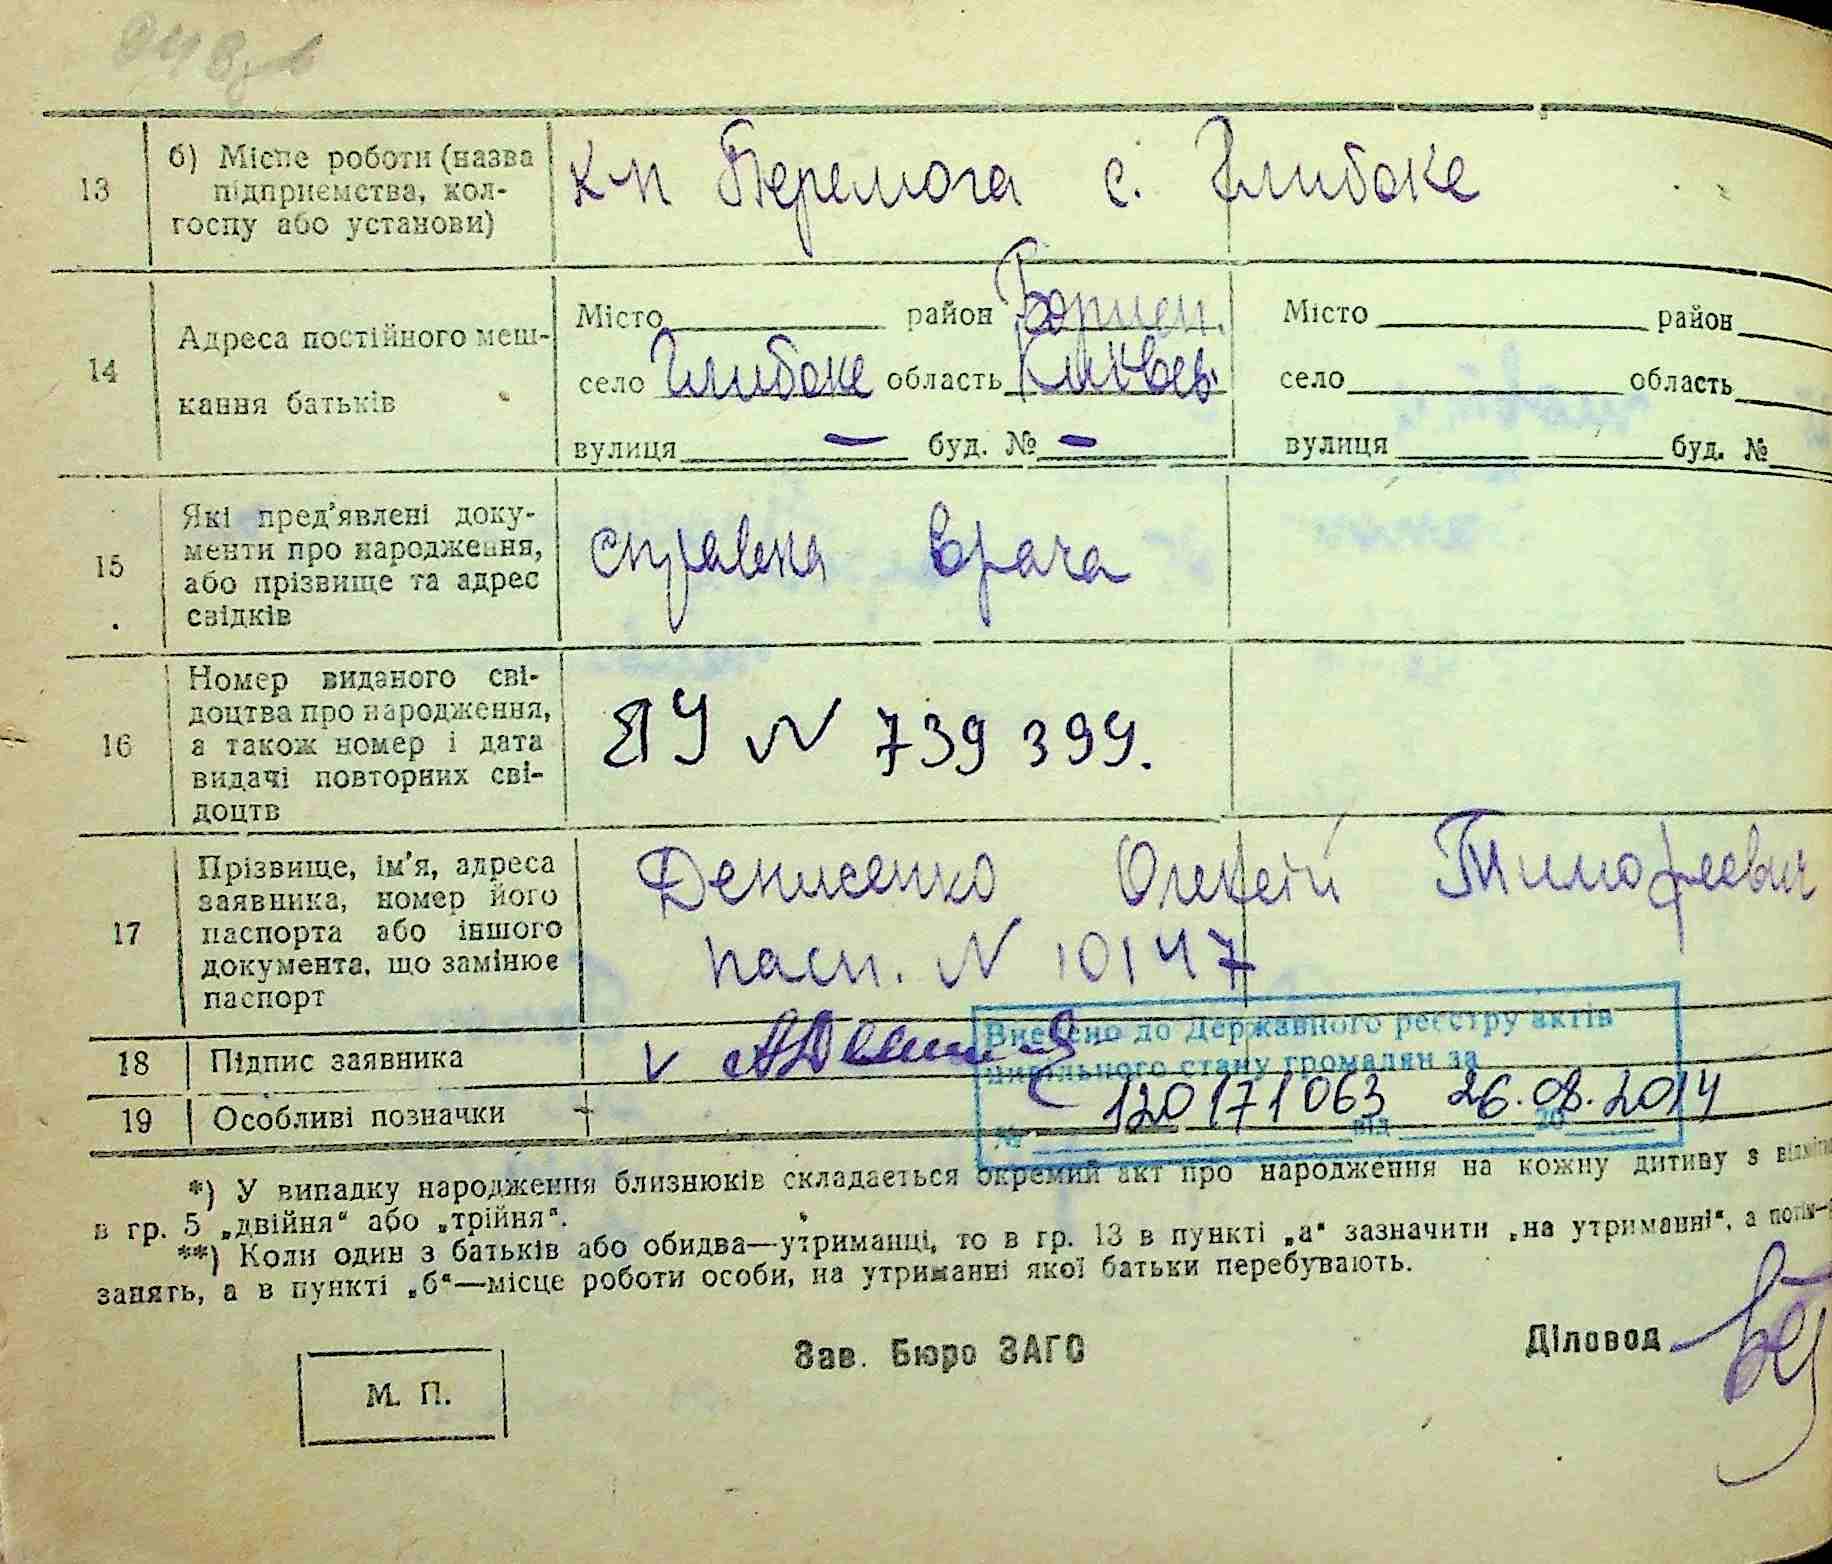 13
б) Місце роботи (назва
підприємства, кол-
госпу або установи)
к-п Перемога с. Глибоке
14
Адреса постійного меш-
кання батьків
Місто район Борисп.
село Глибоке область Київсь.
вулиця — буд. № —
Місто район
село область
вулиця буд. №
15
Які пред'явлені доку-
менти про народження,
або прізвище та адрес
свідків
справка врача
16
Номер виданого сві-
доцтва про народження,
а також номер і дата
видачі повторних сві-
доцтв
ЯУ N 739 399.
17
Прізвище, ім'я, адреса
заявника, номер його
паспорта або іншого
документа, що замінює
паспорт
Денисенко Олексій Тимофеевич
пасп. N 10147
18
Підпис заявника
V
19
Особливі позначки
Внесено до Державного реєстру актів
цивільного стану громадян за
№ 120171063 від 26.08.2014
*) У випадку народження близнюків складається окремий акт про народження на кожну дитину з
в гр. 5 „двійня“ або „трійня“.
**) Коли один з батьків або обидва—утриманці, то в гр. 13 в пункті „а“ зазначити „на утриманні“, а
занять, а в пункті „б“—місце роботи особи, на утриманні якої батьки перебувають.
М. П.
Зав. Бюро ЗАГС
Діловод